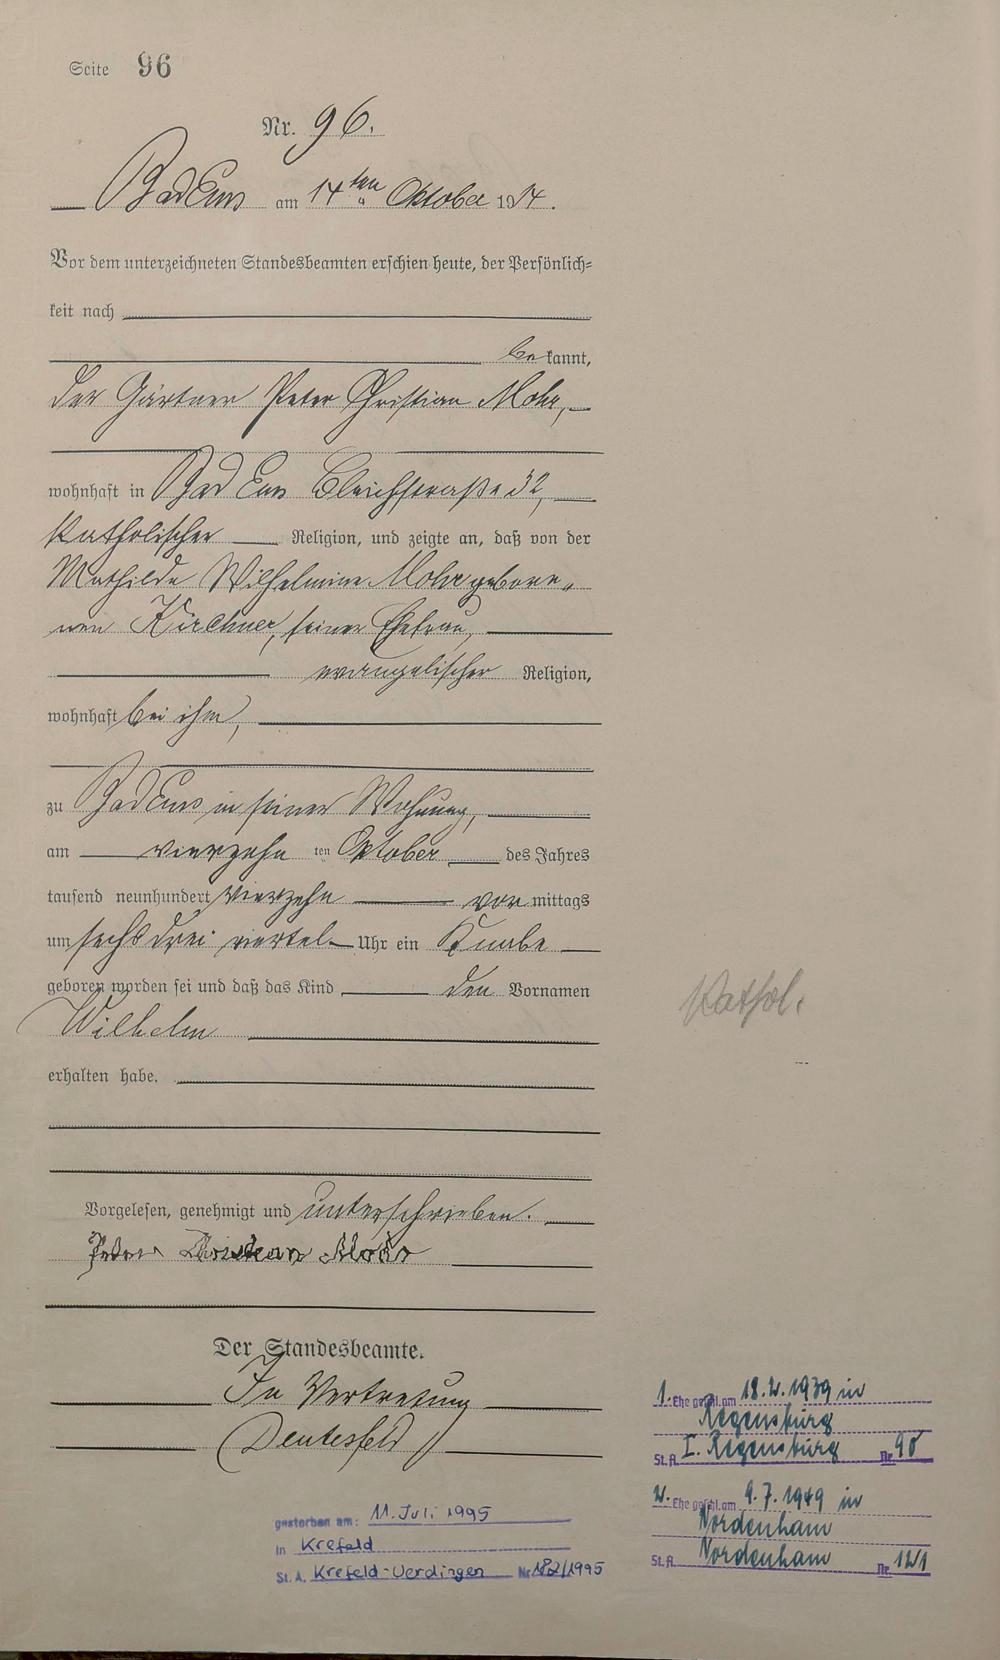 Seite 96
Nr. 96.
Bad Ems am 14ten Oktober 1914.
Vor dem unterzeichneten Standesbeamten erschien heute, der Persönlich-
keit nach
be kannt,
der Gärtner Peter Christian Mohr,
wohnhaft in Bad Ems Bleichstraße 32,
katholischer Religion, und zeigte an, daß von der
Mathilde Wilhelmine Mohr gebore-
nen Kirchner, seiner Ehefrau,
evangelischer Religion,
wohnhaft bei ihm,
zu Bad Ems in seiner Wohnung,
am vierzehn ten Oktober des Jahres
tausend neunhundert vierzehn vor mittags
um sechs drei viertel Uhr ein Knabe
geboren worden sei und daß das Kind den Vornamen
Kathol.
Wilhelm
erhalten habe.
Vorgelesen, genehmigt und unterschrieben.
Peter Christian Mohr
Der Standesbeamte.
In Vertretung
1. Ehe geschl. am 18.2.1939 in
Regensburg
St. A. I. Regensburg Nr. 90
2. Ehe geschl. am 9.7.1949 in
Nordenham
St. A. Nordenham Nr. 121
gestorben am: 11. Juli 1995
in Krefeld
St. A. Krefeld-Uerdingen Nr. 182/1995